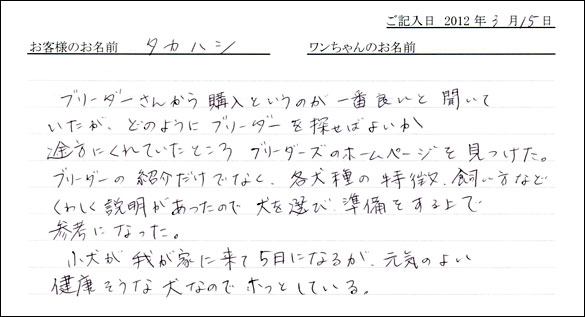 ご記入日 2012年3月15日
お客様のお名前 タカハシ ワンちゃんのお名前
ブリーダーさんから購入というのが一番良いと聞いて
いたが、どのようにブリーダーを探せばよいか
途方にくれていたところ ブリーダーズのホームページを見つけた。
ブリーダーの紹介だけでなく、各犬種の特徴、飼い方など
くわしく説明があったので犬を選び、準備をする上で
参考になった。
小犬が我が家に来て5日になるが、元気のよい
健康そうな犬なのでホッとしている。